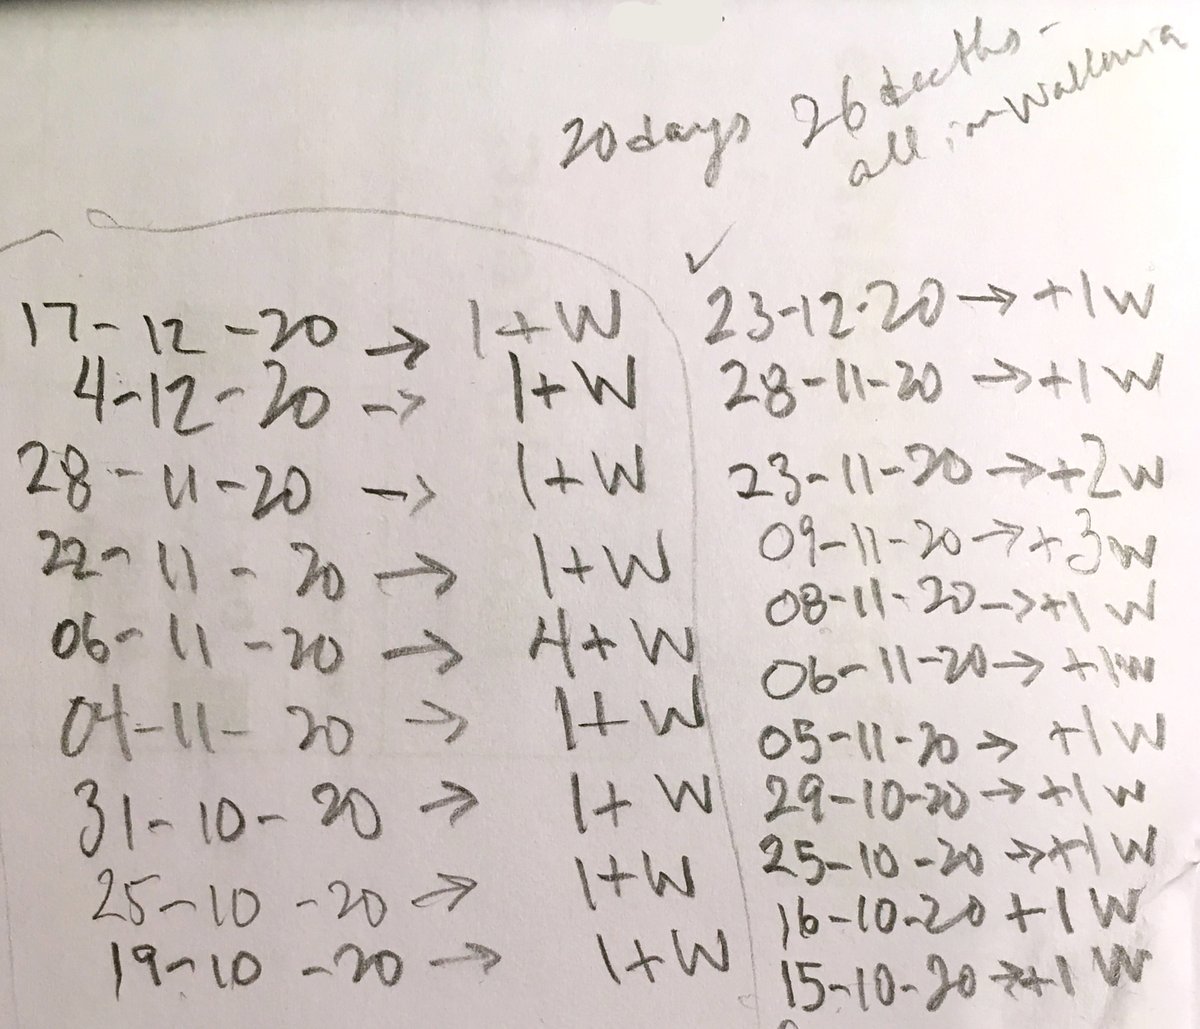 20 days 26 deeths -
all in Wallonia
17-12-20 → 1+W
4-12-20 → 1+W
28-11-20 → 1+W
22-11-20 → 1+W
06-11-20 → 4+W
04-11-20 → 1+W
31-10-20 → 1+W
25-10-20 → 1+W
19-10-20 → 1+W
✓
23-12-20 → +1W
28-11-20 → +1W
23-11-20 → +2W
09-11-20 → +3W
08-11-20 → +1W
06-11-20 → +1W
05-11-20 → +1W
29-10-20 → +1W
25-10-20 → +1W
16-10-20 +1W
15-10-20 → +1W